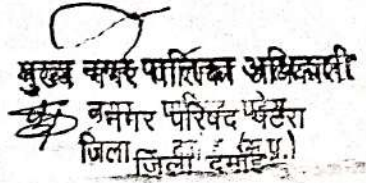 मुख्य नगर पालिका अधिकारी
नगर परिषद पटेरा
जिला दमोह (म.प्र.)